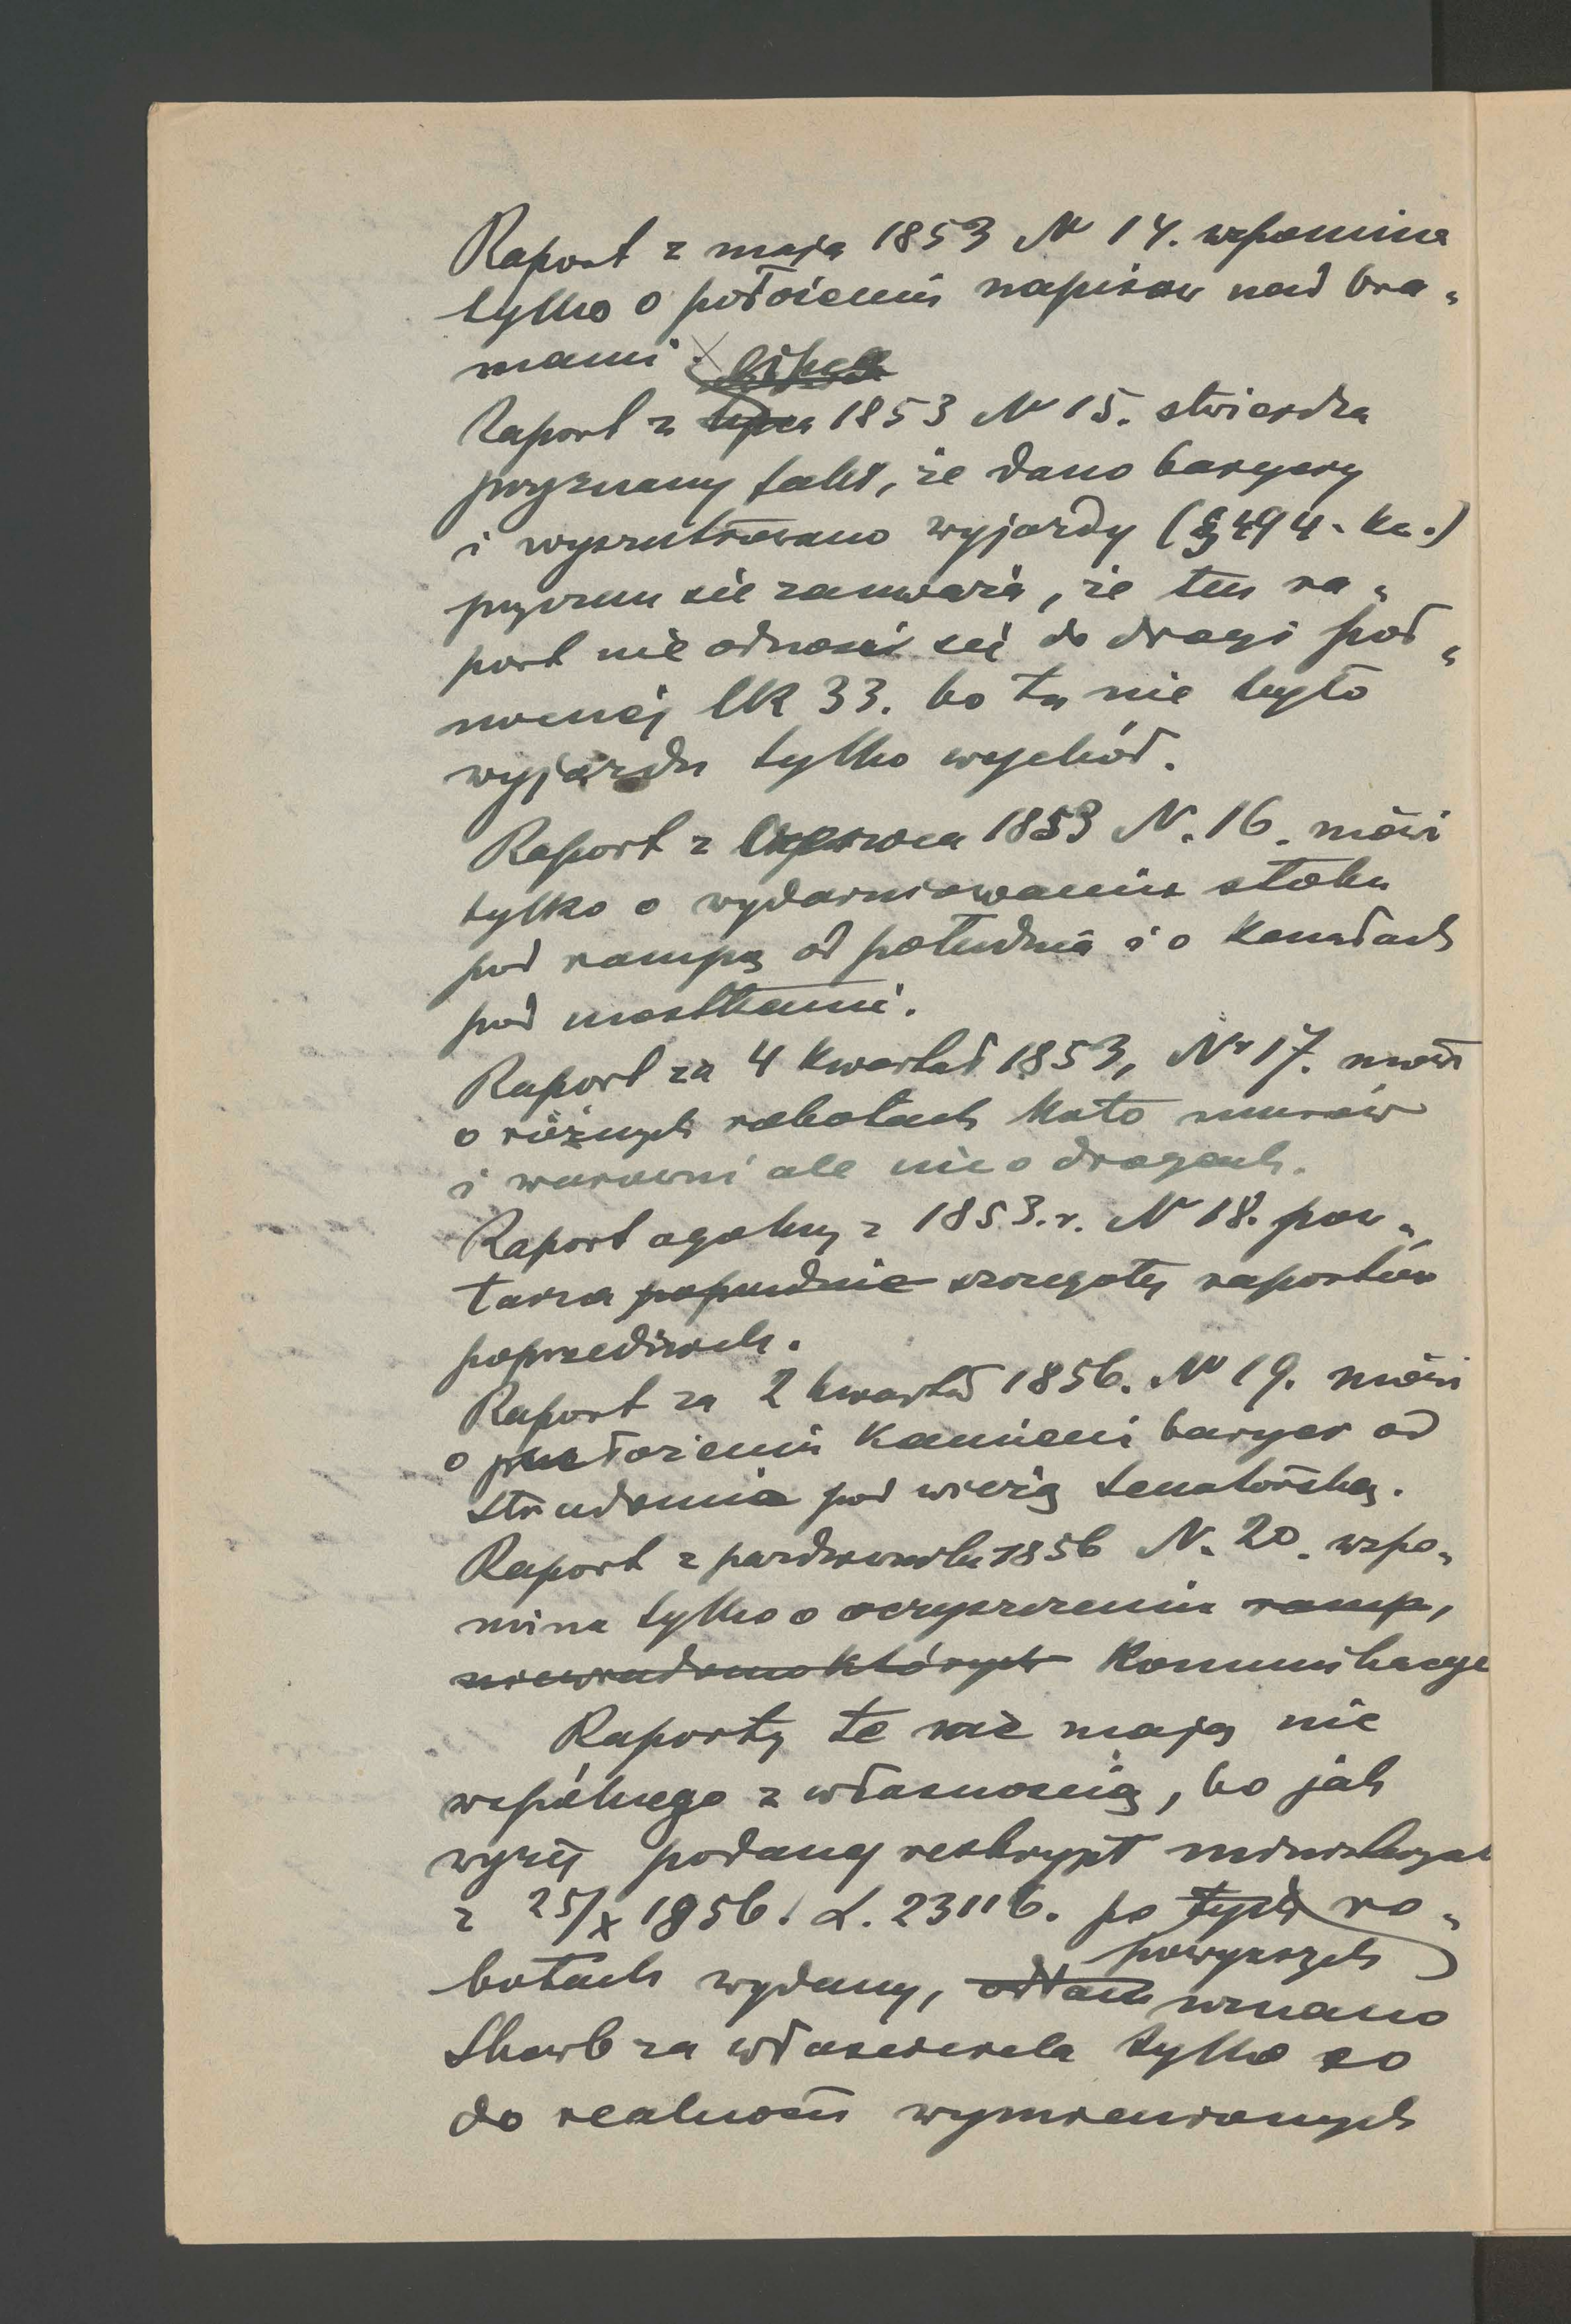 Raport z maja 1853 N 14. wspomina
tylko o położeniu napisów nad bra„
mami
Raport z lipca 1853 N 15. stwierdza
przyznany fakt, że dano baryery
i wyszutrowano wyjazdy (§ 494. kc.)
przyczem się zauważa, że ten ra„
port nie odnosi się do drogi pół„
nocnej lk 33. bo tu nie było
wyjazdu tylko wychód.
Raport z Czerwca 1853 N. 16. mówi
tylko o wydarniowaniu stoku
pod rampą od południa i o kanałach
pod mostkami.
Raport za 4 kwartał 1853, Nr 17. mówi
o różnych robotach koło murów
i warowni ale nic o drogach.
Raport ogólny z 1853.r. N 18. pow„
tarza popudnie szczegóły raportów
poprzednich.
Raport za 2 kwartał 1856. N 19. mówi
o przełożeniu kamieni baryer od
Stradomia pod wieżą Senatorską.
Raport z października 1856 N. 20. wspo„
mina tylko o oczyszczeniu ramp,
niewiadomo których Komunikacye
Raporty te nie mają nic
wspólnego z własnością, bo jak
wyżej podany reskrypt ministeryal
z 25/X 1856. L. 23116. po tych ro„
powyższych
botach wydany, uznano
Skarb za właściciela tylko co
do realności wymienionych